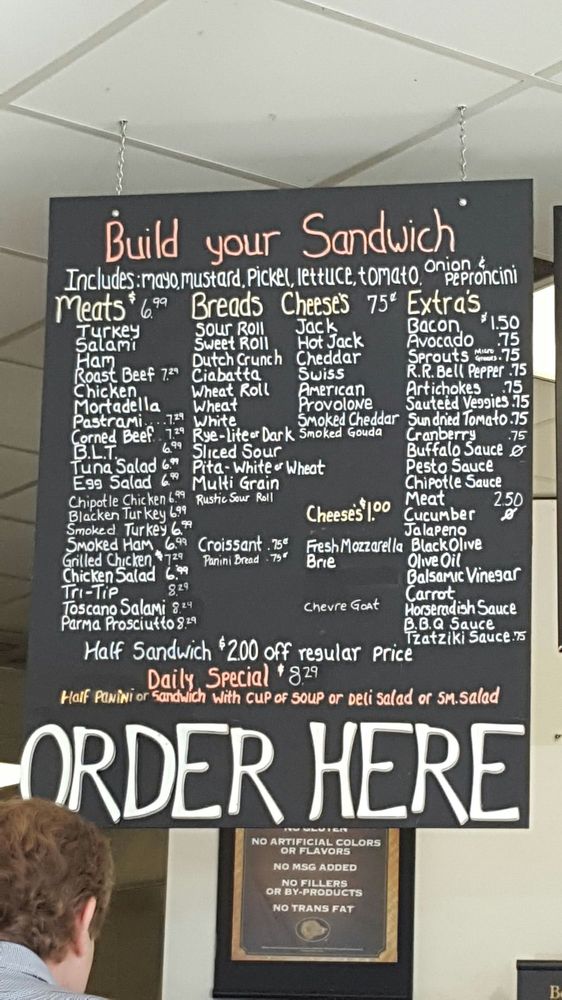 Build your Sandwich
Includes: mayo, mustard, Pickel, lettuce, tomato, Onion & Peproncini
Meats $6.99
Turkey
Salami
Ham
Roast Beef 7.29
Chicken
Mortadella
Pastrami....7.29
Corned Beef. 7.29
B.L.T. 6.99
Tuna Salad 6.99
Egg Salad 6.99
Chipotle Chicken 6.99
Blacken Turkey 6.99
Smoked Turkey 6.99
Smoked Ham 6.99
Grilled Chicken $7.29
Chicken Salad 6.99
Tri-Tip 8.29
Toscano Salami 8.29
Parma Prosciutto 8.29
Breads
Sour Roll
Sweet Roll
Dutch Crunch
Ciabatta
Wheat Roll
Wheat
White
Rye-lite or Dark
Sliced Sour
Pita-White or Wheat
Multi Grain
Rustic Sour Roll
Croissant .75¢
Panini Bread .75¢
Cheese's 75¢
Jack
Hot Jack
Cheddar
Swiss
American
Provolone
Smoked Cheddar
Smoked Gouda
Cheese's $1.00
Fresh Mozzarella
Brie
Chevre Goat
Extra's
Bacon $1.50
Avocado .75
Sprouts Micro Greens .75
R.R. Bell Pepper .75
Artichokes .75
Sauteéd Veggies .75
Sun dried Tomato .75
Cranberry .75
Buffalo Sauce Ø
Pesto Sauce
Chipotle Sauce
Meat 2.50
Cucumber Ø
Jalapeno
Black Olive
Olive Oil
Balsamic Vinegar
Carrot
Horseradish Sauce
B.B.Q Sauce
Tzatziki Sauce .75
Half Sandwich $2.00 off regular Price
Daily Special $8.29
Half Panini or Sandwich with cup of soup or Deli Salad or SM. Salad
ORDER HERE
NO GLUTEN
NO ARTIFICIAL COLORS
OR FLAVORS
NO MSG ADDED
NO FILLERS
OR BY-PRODUCTS
NO TRANS FAT